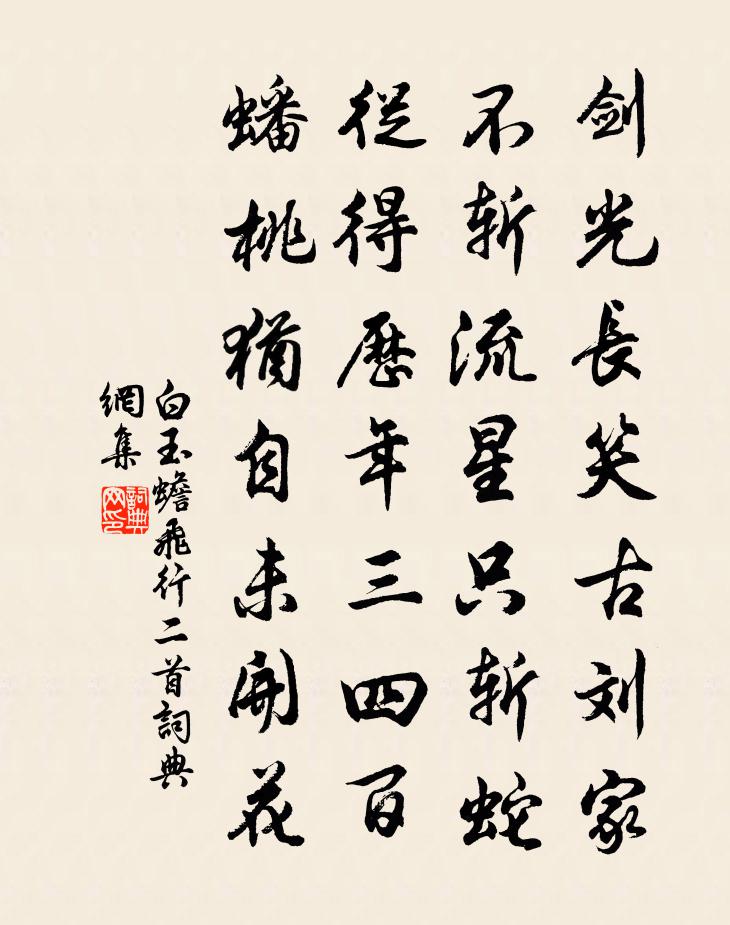 剑光長笑古刘家
不斩流星只斩蛇
從得歷年三四百
蟠桃猶自未開花
白玉蟾飛行二首詞典
網集
詞典
网印